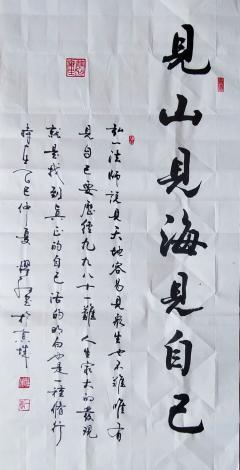 見山見海見自己
弘一法師說見天地容易見衆生也不難唯有
見自己要歷經九九八十一難人生最大的發現
就是找到真正的自己活的明白也是一種修行
時在乙巳仲夏